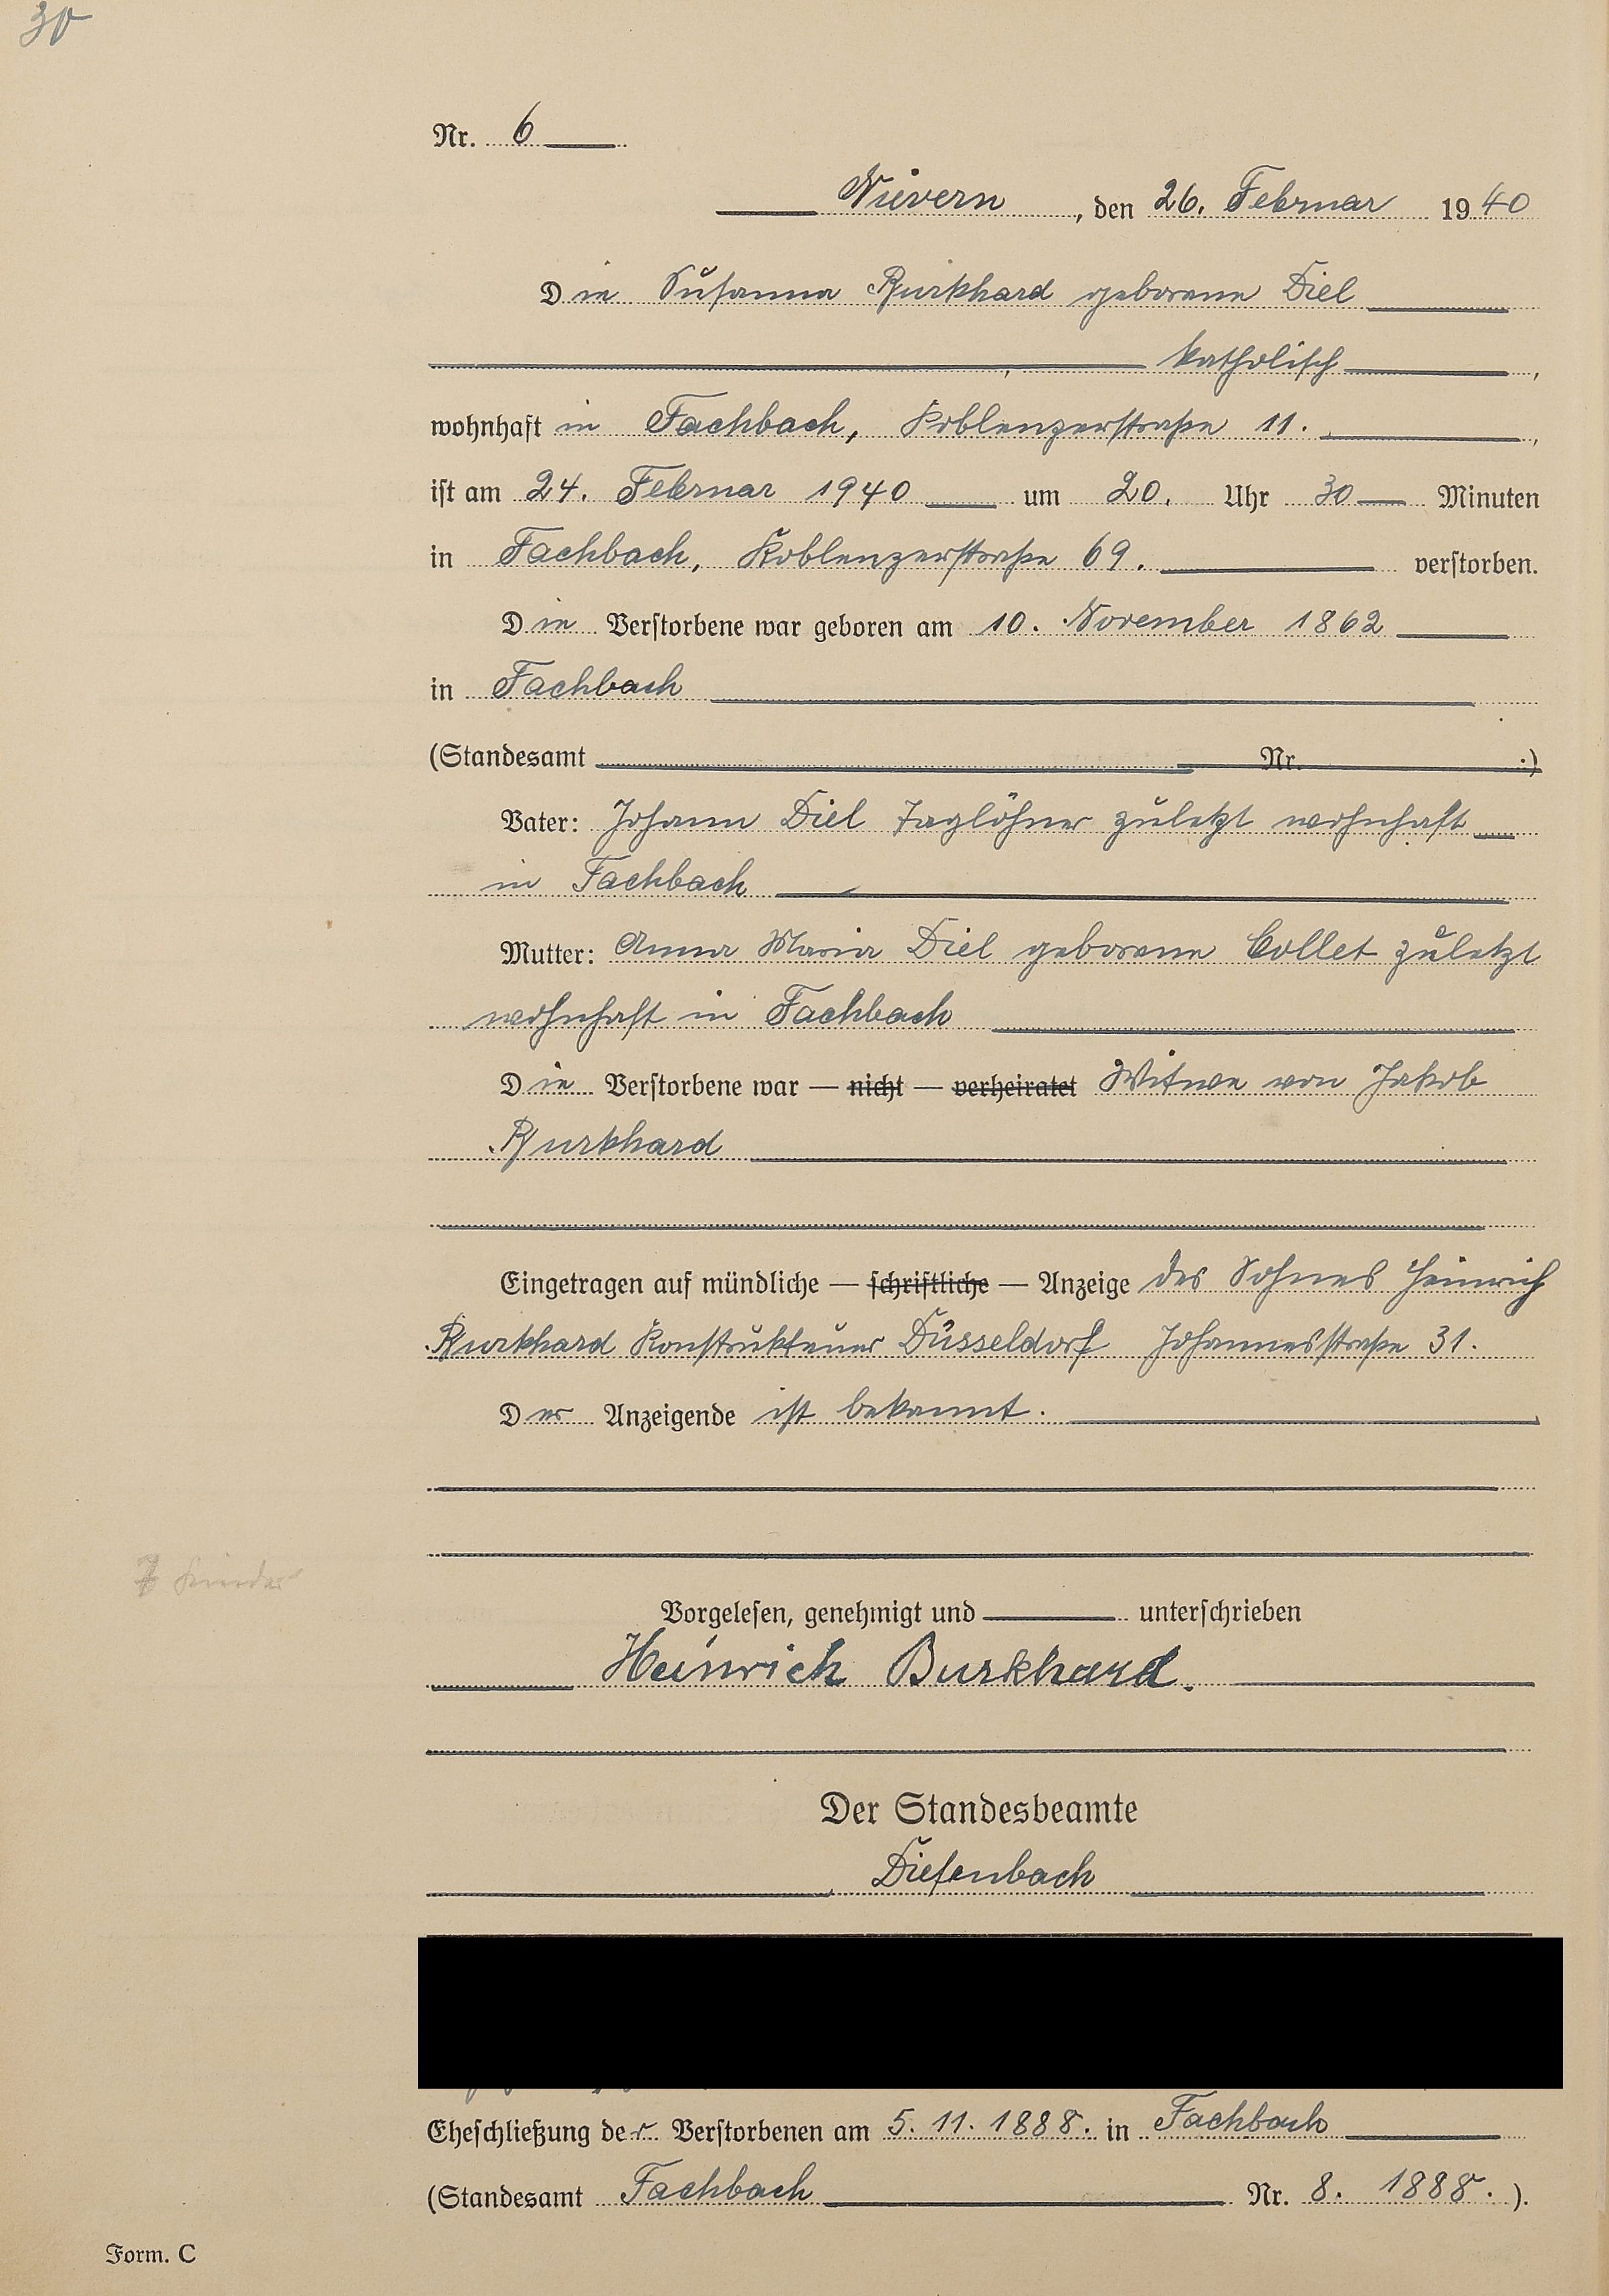 30
Nr. 6
Nievern, den 26. Februar 1940
Die Susanna Burkhard geborene Diel
katholisch,
wohnhaft in Fachbach, Koblenzerstraße 11.,
ist am 24. Februar 1940 um 20. Uhr 30 Minuten
in Fachbach, Koblenzerstraße 69. verstorben.
Die Verstorbene war geboren am 10. November 1862
in Fachbach
(Standesamt Nr. .)
Vater: Johann Diel Taglöhner zuletzt wohnhaft
in Fachbach
Mutter: Anna Maria Diel geborene Collet zuletzt
wohnhaft in Fachbach
Die Verstorbene war — nicht — verheiratet Witwe von Jakob
Burkhard
Eingetragen auf mündliche — schriftliche — Anzeige des Sohnes Heinrich
Burkhard Konstrukteuer Düsseldorf Johannesstraße 31.
Der Anzeigende ist bekannt.
Kinder
Vorgelesen, genehmigt und unterschrieben
Heinrich Burkhard.
Der Standesbeamte
Diefenbach
Eheschließung der Verstorbenen am 5. 11. 1888. in Fachbach
(Standesamt Fachbach Nr. 8. 1888. ).
Form. C